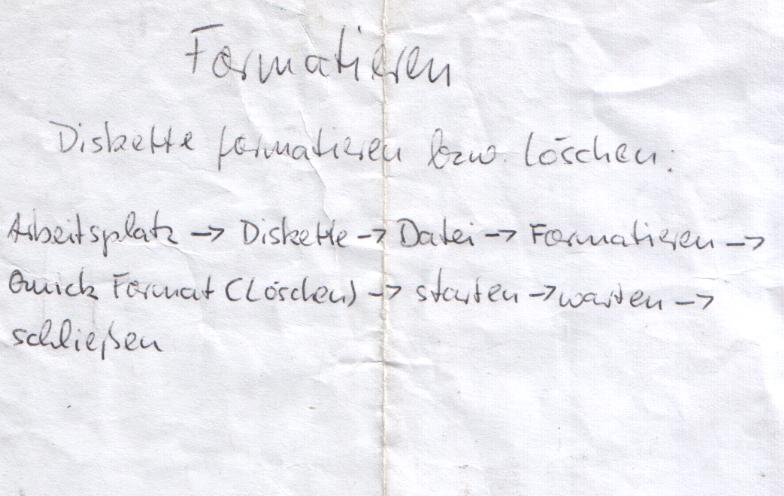 Formatieren
Diskette formatieren bzw. löschen:
Arbeitsplatz → Diskette → Datei → Formatieren →
Quick Format (Löschen) → starten → warten →
schließen